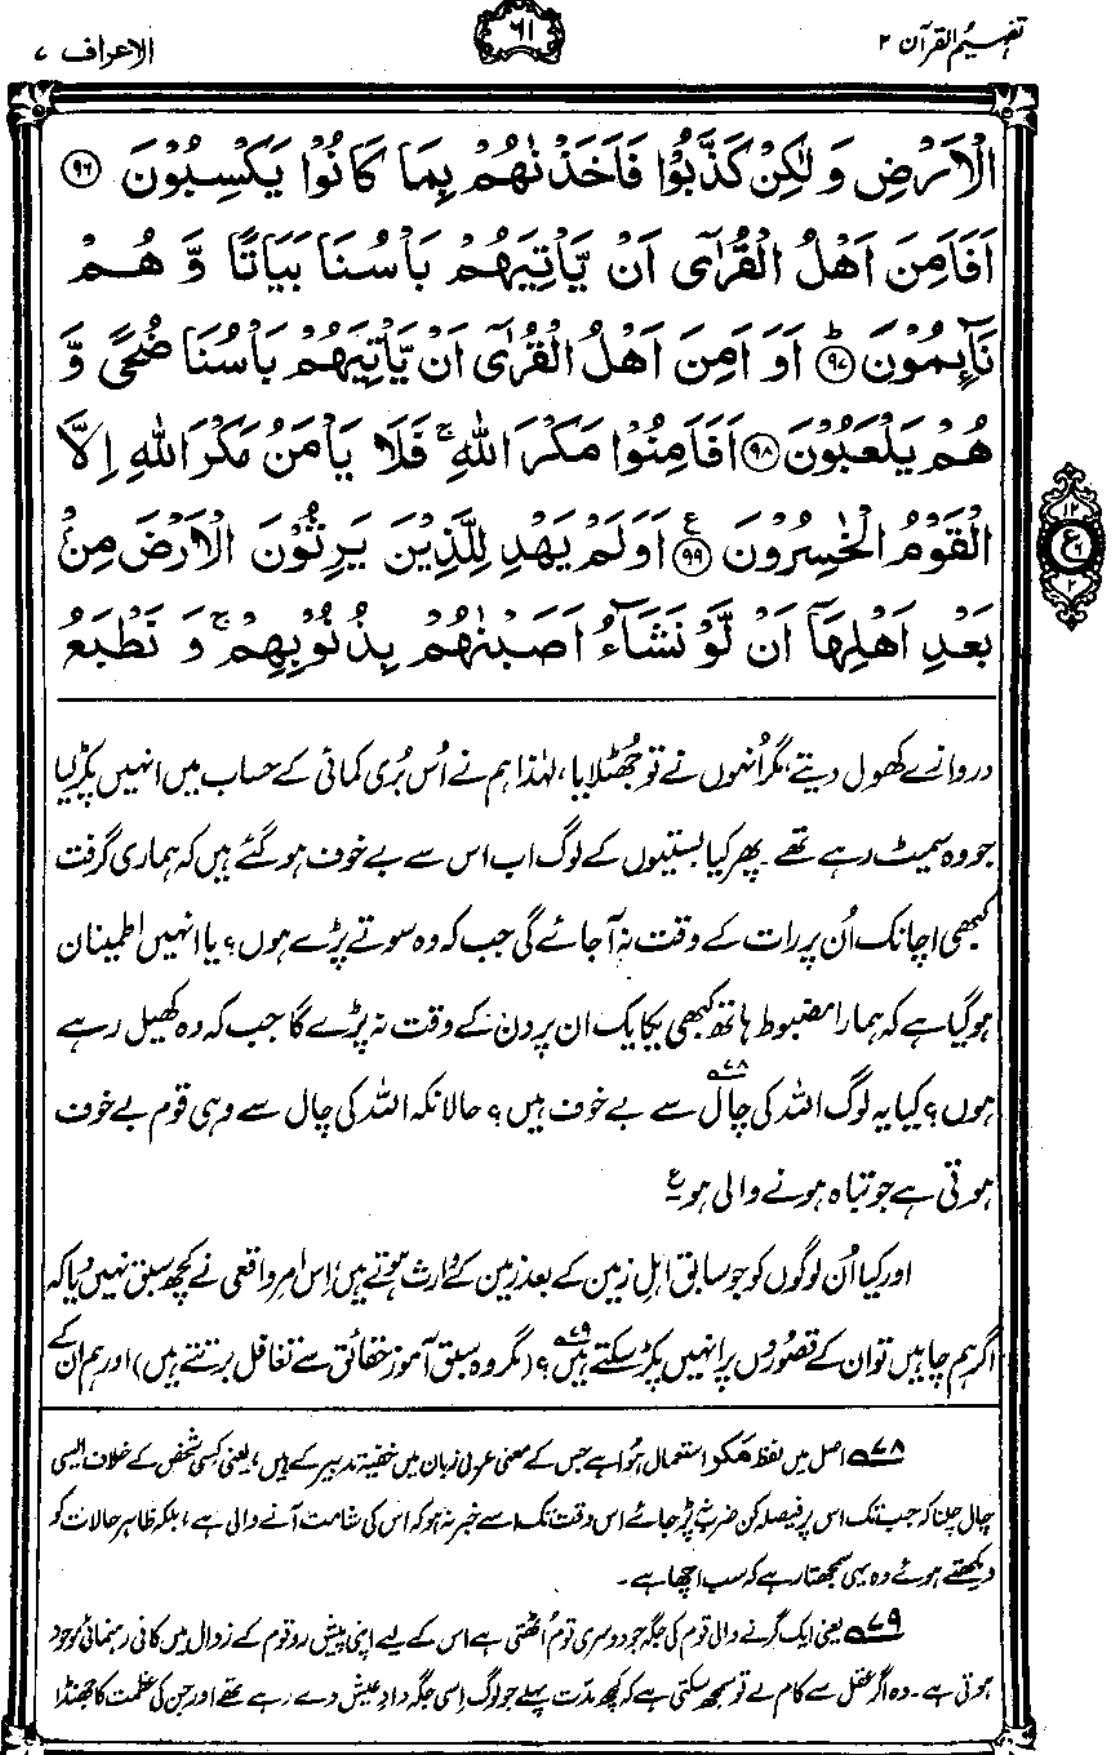 تفہیم القرآن ۲
۶۱
الاعراف ۷
الْاَرْضِ وَ لٰكِنْ كَذَّبُوْا فَاَخَذْنٰهُمْ بِمَا كَانُوْا يَكْسِبُوْنَ ﴿۹۶﴾
اَفَاَمِنَ اَهْلُ الْقُرٰۤى اَنْ يَّاْتِيَهُمْ بَاْسُنَا بَيَاتًا وَّ هُمْ
نَآىِٕمُوْنَ ؕ﴿۹۷﴾ اَوَ اَمِنَ اَهْلُ الْقُرٰۤى اَنْ يَّاْتِيَهُمْ بَاْسُنَا ضُحًى وَّ
هُمْ يَلْعَبُوْنَ ﴿۹۸﴾ اَفَاَمِنُوْا مَكْرَ اللّٰهِ ۚ فَلَا يَاْمَنُ مَكْرَ اللّٰهِ اِلَّا
الْقَوْمُ الْخٰسِرُوْنَ ﴿۹۹﴾ ع اَوَ لَمْ يَهْدِ لِلَّذِيْنَ يَرِثُوْنَ الْاَرْضَ مِنْۢ
بَعْدِ اَهْلِهَاۤ اَنْ لَّوْ نَشَآءُ اَصَبْنٰهُمْ بِذُنُوْبِهِمْ ۚ وَ نَطْبَعُ
۱۲
ع
۲
دروازے کھول دیتے، مگر اُنہوں نے تو جُھٹلایا، لہٰذا ہم نے اُس بُری کمائی کے حساب میں انہیں پکڑ لیا
جو وہ سمیٹ رہے تھے۔ پھر کیا بستیوں کے لوگ اب اس سے بے خوف ہو گئے ہیں کہ ہماری گرفت
کبھی اچانک اُن پر رات کے وقت نہ آ جائے گی جب کہ وہ سوتے پڑے ہوں؟ یا انہیں اطمینان
ہو گیا ہے کہ ہمارا مضبوط ہاتھ کبھی یکایک ان پر دن کے وقت نہ پڑے گا جب کہ وہ کھیل رہے
ہوں؟ کیا یہ لوگ اللہ کی چال۷۸ سے بے خوف ہیں؟ حالانکہ اللہ کی چال سے وہی قوم بے خوف
ہوتی ہے جو تباہ ہونے والی ہو۔ ع
اور کیا اُن لوگوں کو جو سابق اہلِ زمین کے بعد زمین کے وارث ہوتے ہیں، اِس امرِ واقعی نے کچھ سبق نہیں دیا کہ
اگر ہم چاہیں تو ان کے قصوروں پر انہیں پکڑ سکتے ہیں۷۹؟ (مگر وہ سبق آموز حقائق سے تغافل برتتے ہیں) اور ہم ان کے
۷۸ اصل میں لفظ مَکر استعمال ہُوا ہے جس کے معنی عربی زبان میں خفیہ تدبیر کے ہیں، یعنی کسی شخص کے خلاف ایسی
چال چلنا کہ جب تک اس پر فیصلہ کن ضرب نہ پڑ جائے اس وقت تک اسے خبر نہ ہو کہ اس کی شامت آنے والی ہے، بلکہ ظاہر حالات کو
دیکھتے ہوئے وہ یہی سمجھتا رہے کہ سب اچھا ہے۔
۷۹ یعنی ایک گرنے والی قوم کی جگہ جو دوسری قوم اُٹھتی ہے اس کے لیے اپنی پیش رو قوم کے زوال میں کافی رہنمائی موجود
ہوتی ہے۔ وہ اگر عقل سے کام لے تو سمجھ سکتی ہے کہ کچھ مدت پہلے جو لوگ اِسی جگہ دادِ عیش دے رہے تھے اور جن کی عظمت کا جھنڈا